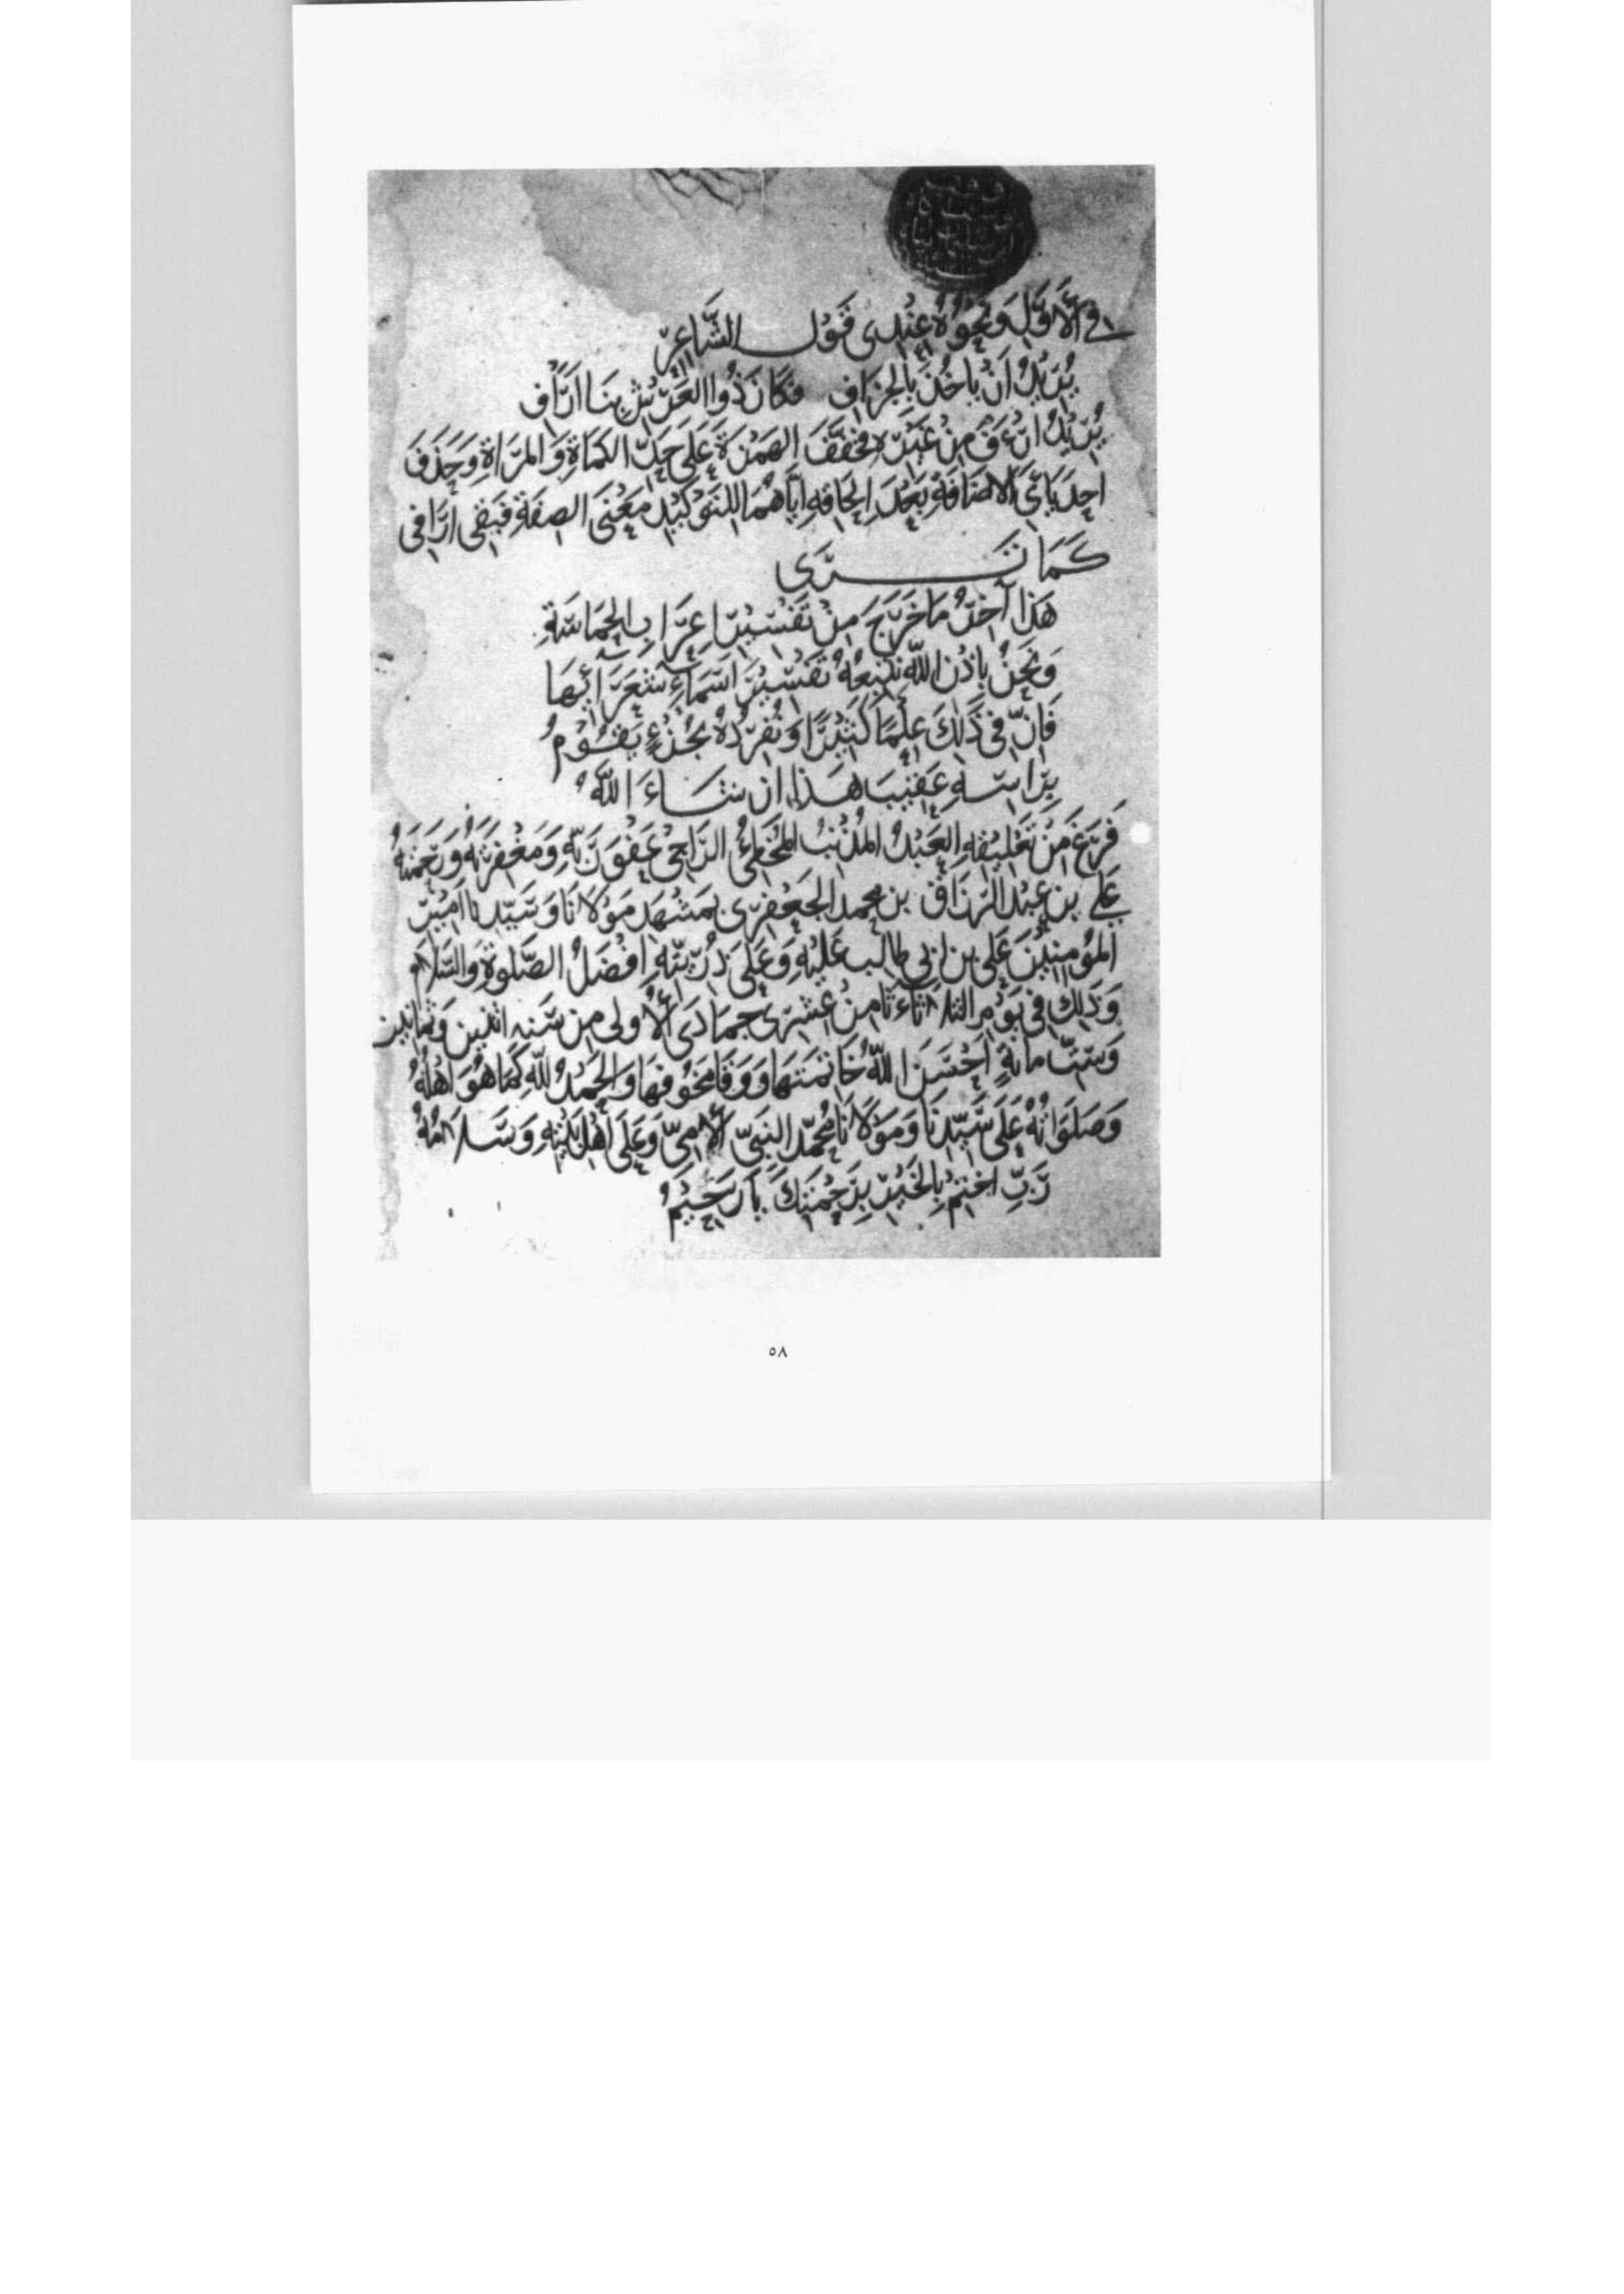 في الأوَّلِ وَنَحْوُهُ عِنْدِى قَوْلُ الشَّاعِرِ
يُرِيْدُ اَنْ يَاخُذَ بِالجِزَافِ فَكَانَ ذُوا العَرْشِ بِنَا اَرَافِ
يُرِيْدُ مِنْ غَيْرِهِ فَخَفَّفَ الهَمْزَةَ عَلَى حَدِّ الكَمَاةِ وَالمَرَاةِ وَحَذَفَ
اِحْدَ يَاءَىِ الاضَافَةِ بَعْدَ اِلحَاقِهِ اِيَّاهُمَا لِلتَوْكِيْدِ مَعْنَى الصِفَةِ فَبَقِى اَرَافِى
كَمَا تَرَى
هَذا آخِرُ مَا خَرَجَ مِنْ تَفْسِيْرِ اِعْرَابِ الحَمَاسَةِ
وَنَحْنُ بِاذْنِ اللهِ نُتْبِعُهُ تَفْسِيْرَ اَسْمَاءِ شُعَرَآئِهَا
فَاِنَّ فِى ذَلِكَ عِلْمًا كَثِيْرًا وَنُفْرِدُهُ بِجُزْءٍ يَقُوْمُ
بِرَاسِهِ عَقِيْبَ هَذَا اِن شَاءَ اللهُ
فَرَغَ مِنْ تَعْلِيْقِهِ العَبْدُ المُذْنِبُ المُخْطِئُ الرَّاجِى عَفْوَ رَبِّهِ وَمَغْفِرَتَهُ وَرَحْمَتَهُ
عَلِي بن عَبْد الرَزَاق بن محمد الجَعْفَرِى بِمَشْهَدِ مَوْلانَا وَسَيِّدِنَا اَمِيْرِ
المُؤْمِنِيْنَ عَلِى بن اَبِي طَالِب عَلَيْهِ وَعَلَى ذُرِّيَّتِهِ اَفْضَلُ الصَّلوةِ وَالسَّلام
وَذَلِكَ فِى يَوْمِ الثلاثَاءِ ثَامِنْ عِشْرِى جُمَادَى الأُولى مِن سَنَه اثنين وَثَمانين
وَسِتِّمايَةٍ اَحْسَنَ اللهُ خَاتِمَتَهَا وَوَقَا مَخُوْفَهَا وَالحَمْدُ لِلّهِ كَمَا هُوَ اَهْلُهُ
وَصَلَوَاتُهُ عَلَى سَيِّدِنَا وَمَوْلانَا مُحَمَّدٍ النَبِىِّ الأُمِىِّ وَعَلَى اَهْلِ بَيْتِهِ وَسَلامُهُ
رَبِّ اخْتِمْ بِالخَيْرِ بِرَحْمَتِكَ يَا رَحِيْمُ
٥٨